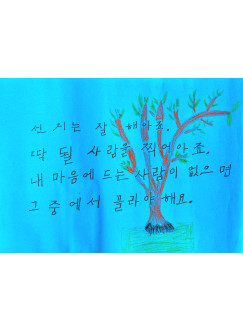 선지는 잘 해야죠.
딱 될 사람을 찍어야죠.
내 마음에 드는 사람이 없으면
그 중에서 골라야 해요.